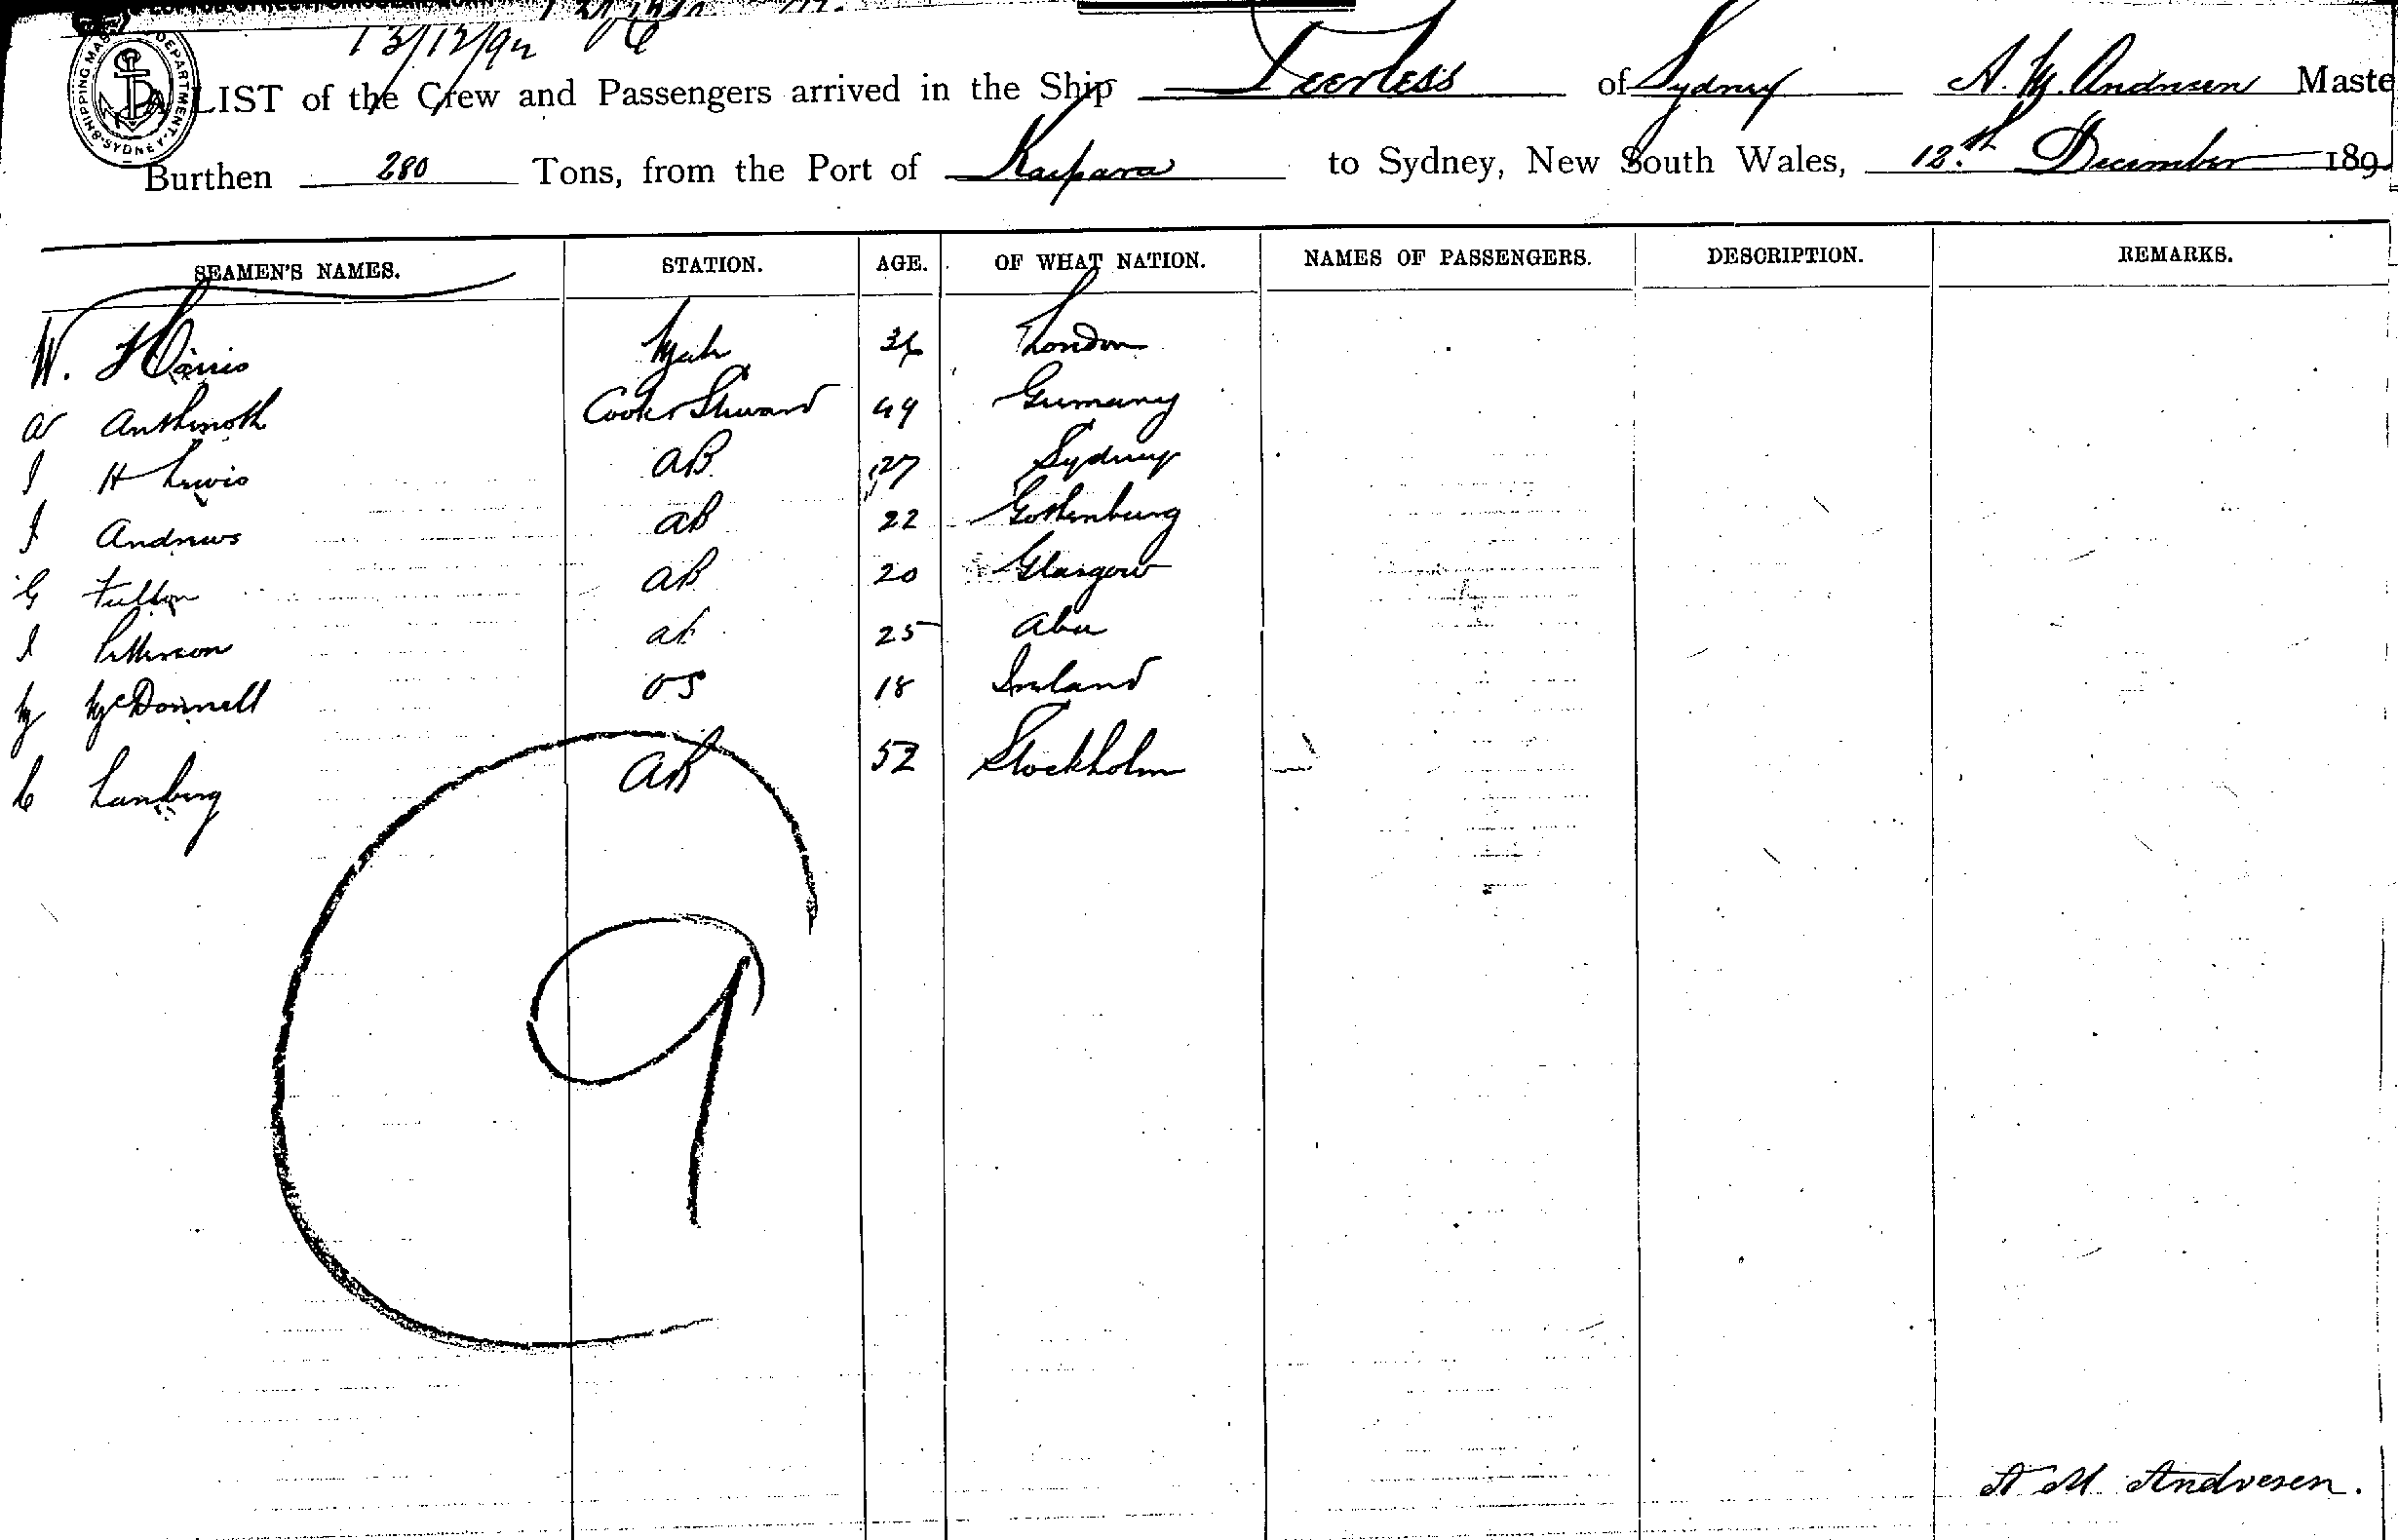 13/12/92
SHIPPING MASTER DEPARTMENT SYDNEY
A LIST of the Crew and Passengers arrived in the Ship Peerless of Sydney A. M. Andresen Maste
Burthen 280 Tons, from the Port of Kaipara to Sydney, New South Wales, 12th December 189
SEAMEN'S NAMES. STATION. AGE. OF WHAT NATION. NAMES OF PASSENGERS. DESCRIPTION. REMARKS.
W. Harris Mate 34 London
Cook & Steward 49 Germany
J H Lewis AB 27 Sydney
J Andrews AB 22 Gothenburg
G Fulton AB 20 Glasgow
J Petterson AB 25 Abu
M McDonnell OS 18 Ireland
C Lanberg AB 52 Stockholm
9
A M Andresen.